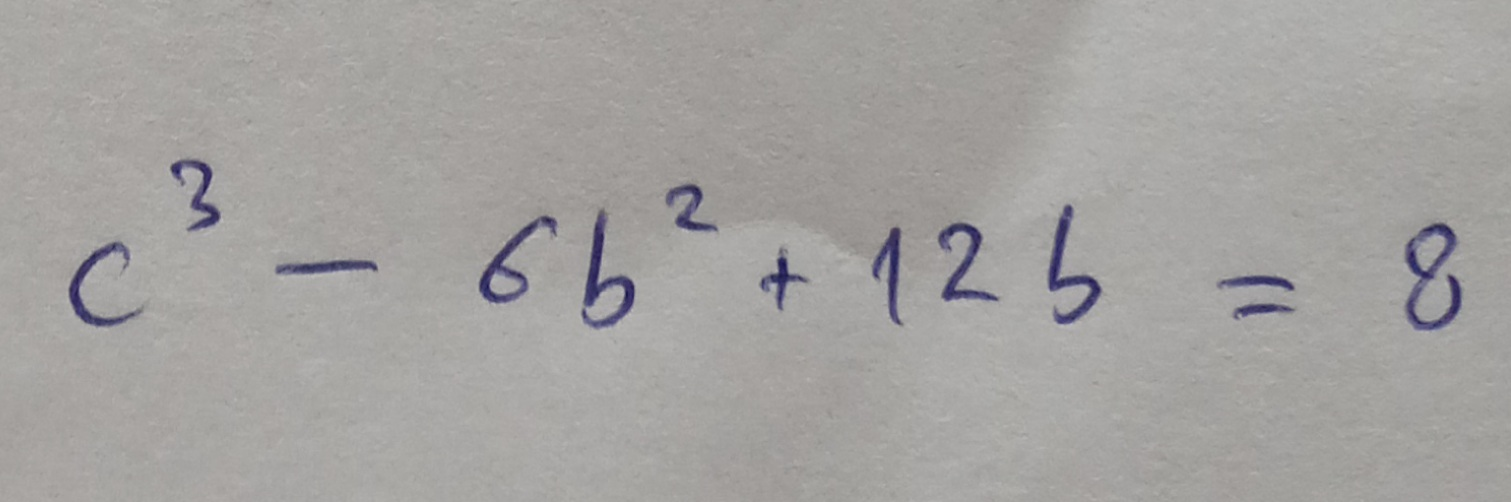 c³ - 6b² + 12b = 8